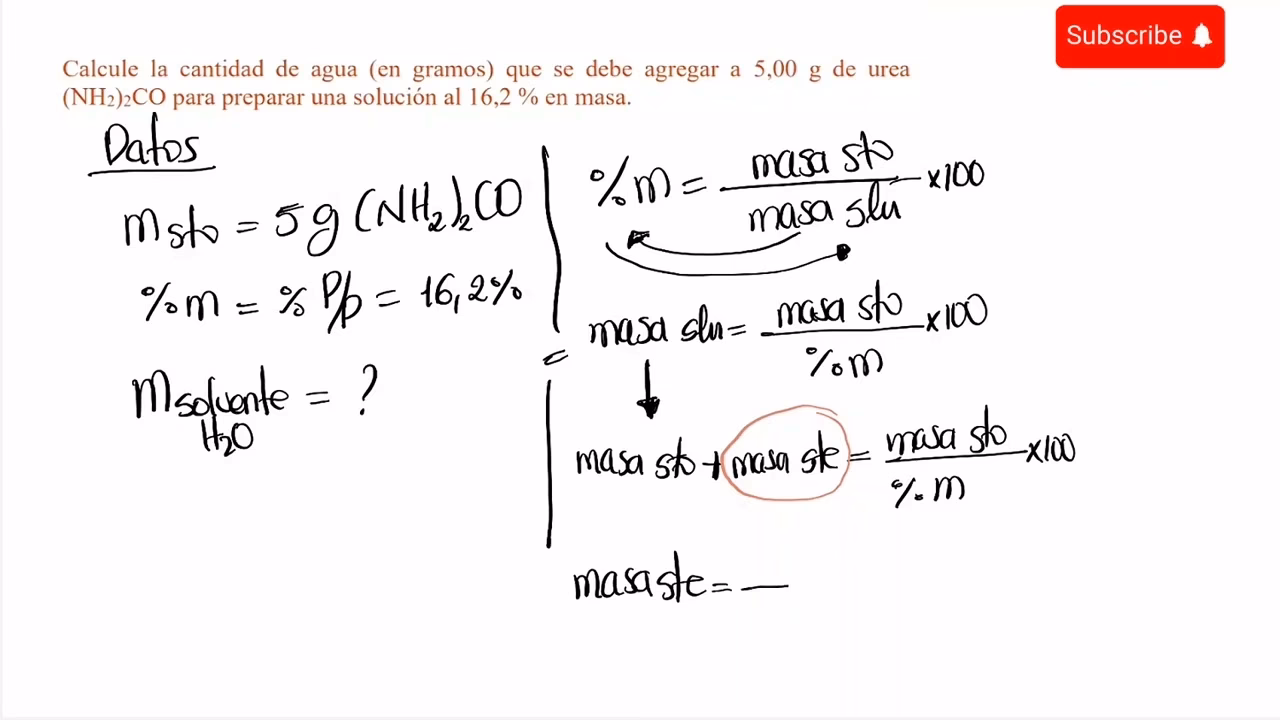 Subscribe
Calcule la cantidad de agua (en gramos) que se debe agregar a 5,00 g de urea
(NH2)2CO para preparar una solución al 16,2 % en masa.
Datos
m sto = 5g (NH2)2CO
%m = % P/p = 16,2%
m solvente = ?
H2O
%m = masa sto / masa slu x100
masa slu = masa sto / %m x100
=
masa sto + masa ste = masa sto / %m x100
masa ste = —